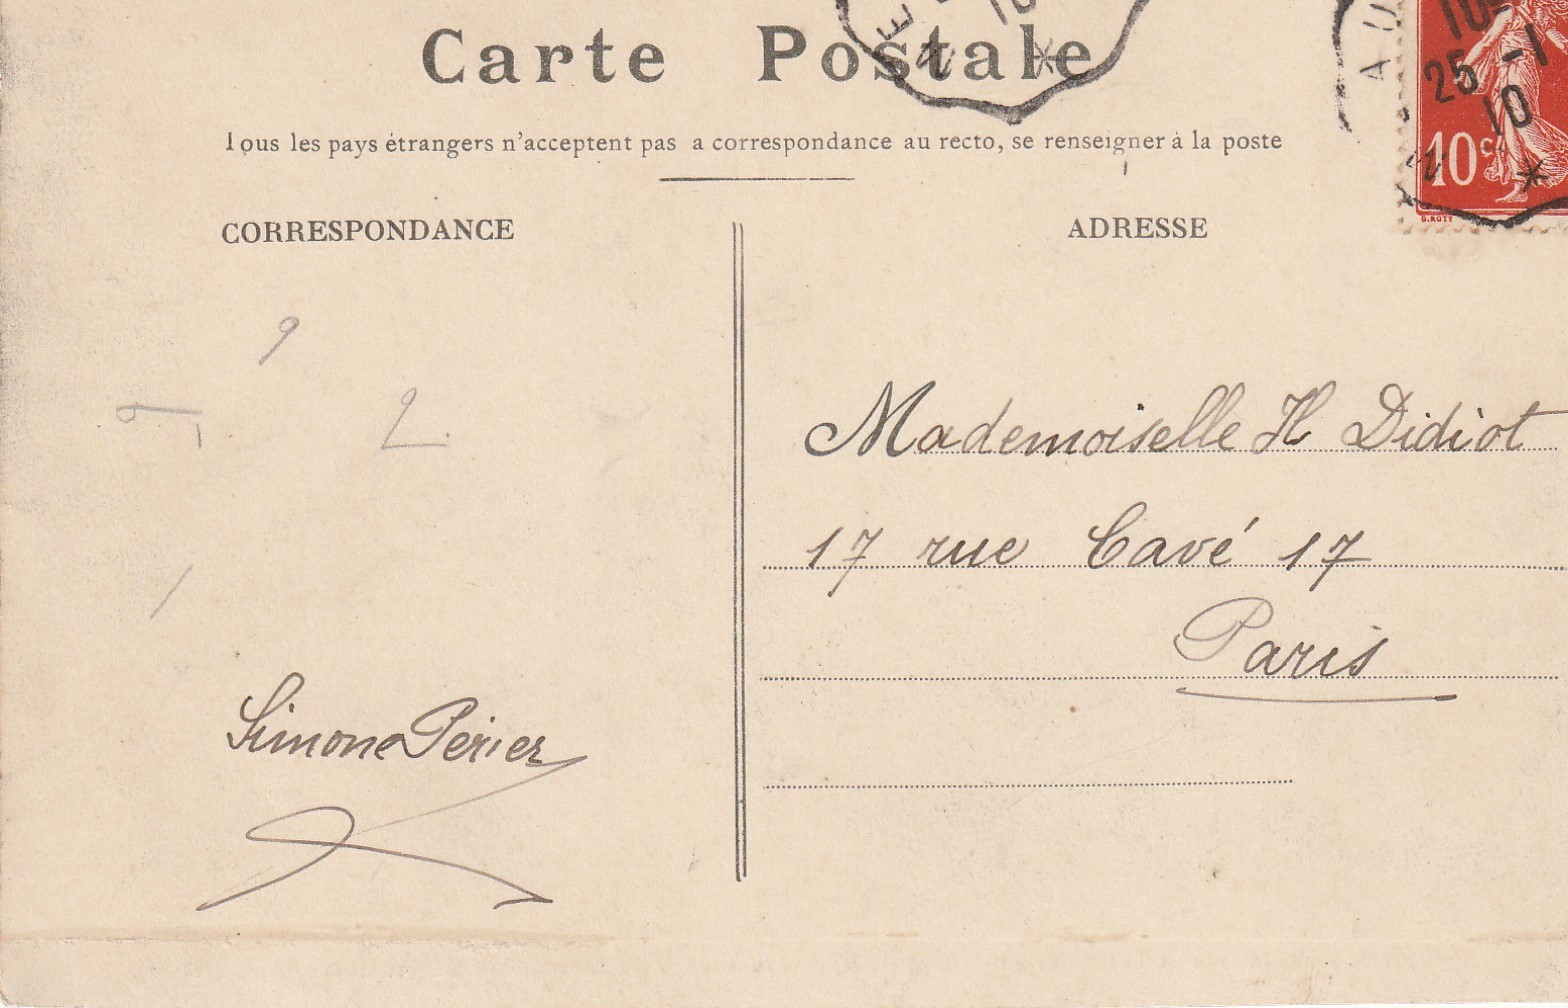 Carte Postale
Tous les pays étrangers n'acceptent pas la correspondance au recto, se renseigner à la poste
CORRESPONDANCE
ADRESSE
10
25 -1
10
10c
O. ROTY
9
2
Mademoiselle H Didiot
17 rue Cavé 17
Paris
Simone Périer